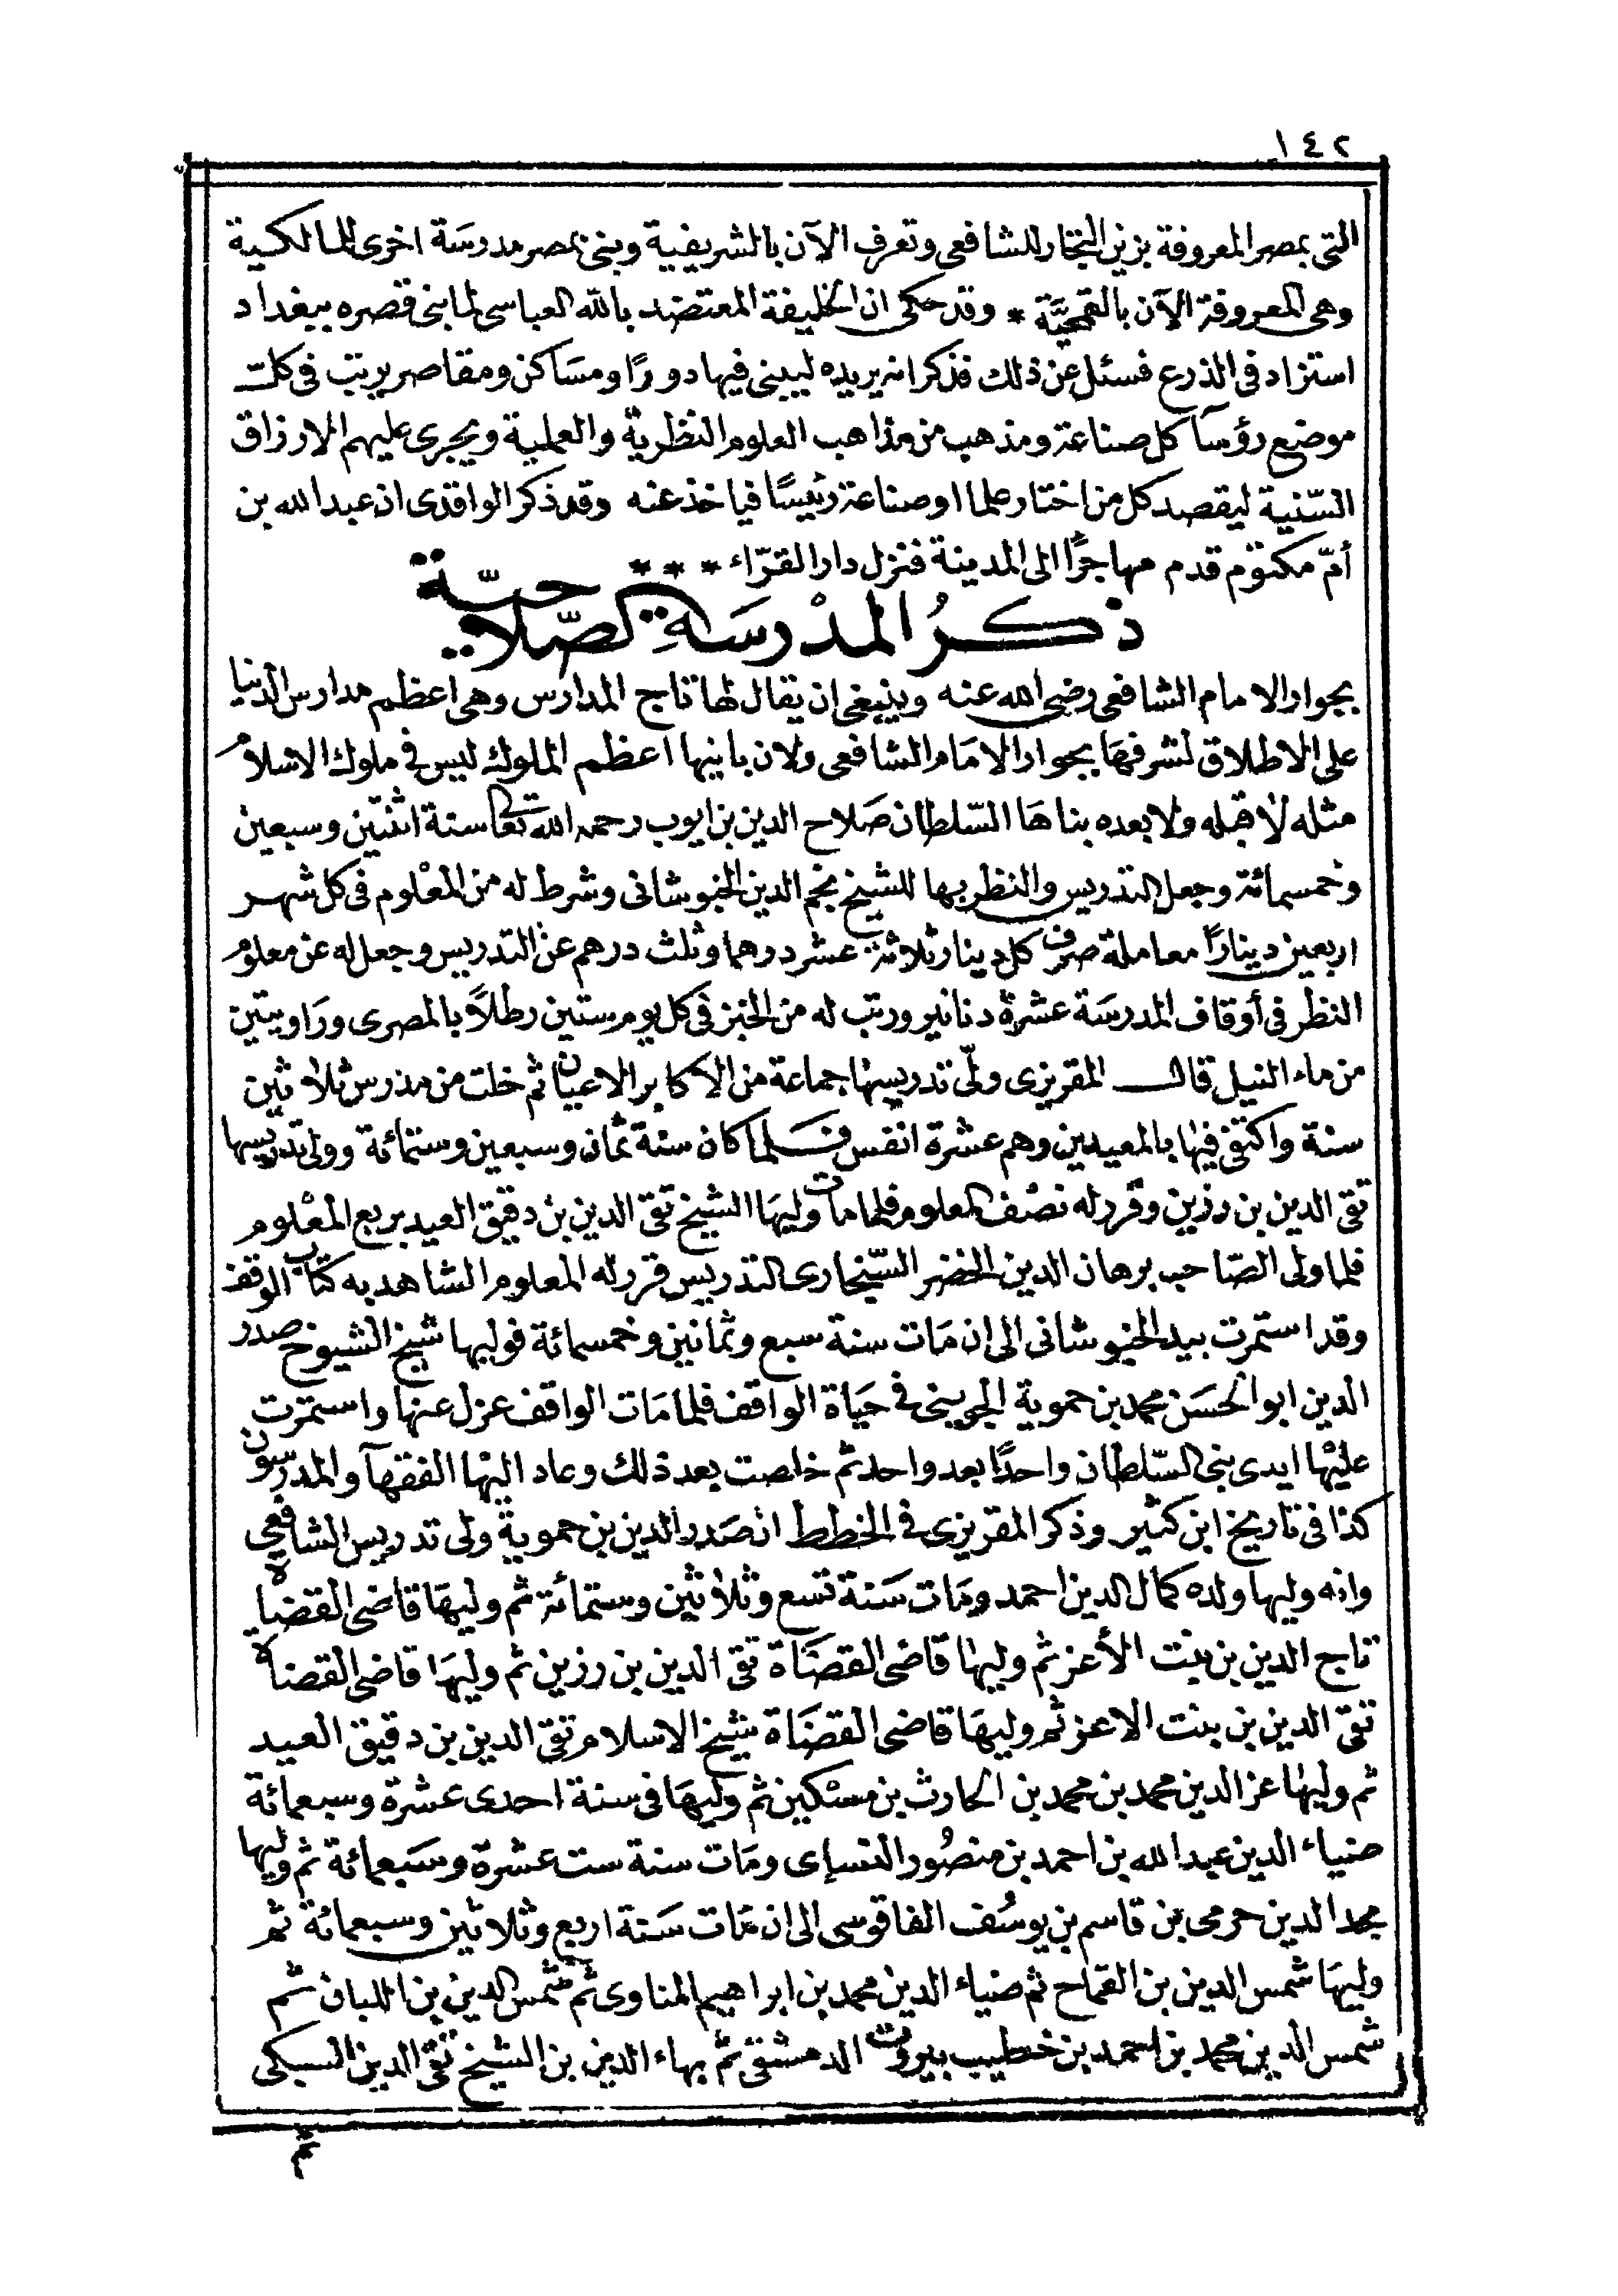 ١٤٢
التى بمصر المعروفة بزين التجار للشافعى وتعرف الآن بالشريفية وبنى بمصر مدرسة اخرى للمالكية
وهى المعروفة الآن بالقمحيَّة * وقد حكى ان الخليفة المعتضد بالله العباسى لما بنى قصره ببغداد
استزاد فى الذرع فسئل عن ذلك فذكر انه يريده ليبنى فيها دورًا ومساكن ومقاصر يرتب فى كل
موضع رؤسآ كل صناعة ومذهب من مذاهب العلوم النظرية والعملية ويجرى عليهم الارزاق
السّنية ليقصد كل من اختار علما او صناعة رئيسًا فياخذ عنه وقد ذكر الواقدى ان عبد الله بن
أمّ مكتوم قدم مهاجرًا الى المدينة فنزل دار القرّاء * * *
ذكرُ المدْرسَةِ الصّلاحيّة
بجوار الامام الشافعى رضى الله عنه وينبغى ان يقال لها تاج المدارس وهى اعظم مدارس الدنيا
على الاطلاق لشرفها بجوار الامام الشافعى ولان بانيها اعظم الملوك ليس فى ملوك الاسلام
مثله لا قبله ولا بعده بناها السّلطان صَلاح الدين بن ايوب رحمه الله تعا سنة اثنتين وسبعين
وخمسمائة وجعل التدريس والنظر بها للشيخ نجم الدين الخبوشانى وشرط له من المعْلوم فى كل شهر
اربعين دينارًا معاملة صرف كل دينار ثلاثة عشر درهما وثلث درهم عن التدريس وجعل له عن معلوم
النظر فى أوقاف المدرسَة عشرة دنانير ورتب له من الخبز فى كل يوم ستين رطلاً بالمصرى ورَاويتين
من ماء النيل قال المقريزى ولّى تدريسها جماعة من الاكابر الاعيان ثم خلت من مدرس ثلاثين
سنة واكتفى فيها بالمعيدين وهم عشرة انفس فلما كان سنة ثمان وسبعين وستمائة وولى تدريسها
تقى الدين بن رزين وقرر له نصْف المعلوم فلما مات وليهَا الشيخ تقى الدين بن دقيق العيد بربع المعْلوم
فلما ولى الصّاحب برهان الدين الخضر السّنجارى التدريس قرر له المعلوم الشاهد به كتاب الوقف
وقد استمرت بيد الخبوشانى الى ان مَات سنة سبع وثمانين وخمسمائة فوليها شيخ الشيوخ صدر
الدين ابو الحسَن محمد بن حموية الجوينى فى حَياة الواقف فلما مَات الواقف عزل عنها واستمرت
عليْها ايدى بنى السّلطان واحدًا بعد واحد ثم خلصت بعد ذلك وعاد اليْها الفقهآ والمدرّسون
كذا فى تاريخ ابن كثير وذكر المقريزى فى الخطط ان صَدر الدين بن حموية ولى تدريس الشافعى
وانه وليها ولده كمال الدين احمد ومَات سَنة تسع وثلاثين وستمائة ثم وليهَا قاضى القضاة
تاج الدين بن بنت الأعز ثم وليها قاضى القضَاة تقى الدين بن رزين ثم وليهَا قاضى القضاة
تقى الدين بن بنت الاعز ثم وليهَا قاضى القضَاة شيخ الاسلام تقى الدين بن دقيق العيد
ثم وليها عز الدين محمد بن محمد بن الحارث بن مسْكين ثم وليهَا فى سنة احدى عشرة وسبعمائة
ضياء الدين عبد الله بن احمد بن منصُور النساى ومَات سنة ست عشرة وسَبعمائة ثم وليها
مجد الدين حرمى بن قاسم بن يوسُف الفاقوسى الى ان مَات سَنة اربع وثلاثين وسبعمائة ثم
وليهَا شمس الدين بن القماح ثم ضياء الدين محمد بن ابراهيم المناوى ثم شمس الدين بن اللبان ثم
شمس الدين محمد بن احمد بن خطيب بيروت الدمشقى ثم بهاء الدين بن الشيخ تقى الدين السبكى
ثم